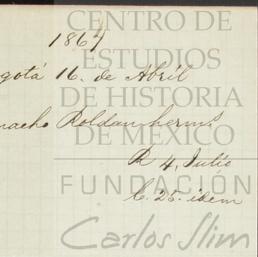 1867
gotá 16. de Abril
macho Roldan herms
R 4, Julio
C. 25. idem
CENTRO DE
ESTUDIOS
DE HISTORIA
DE MEXICO
FUNDACIÓN
Carlos Slim